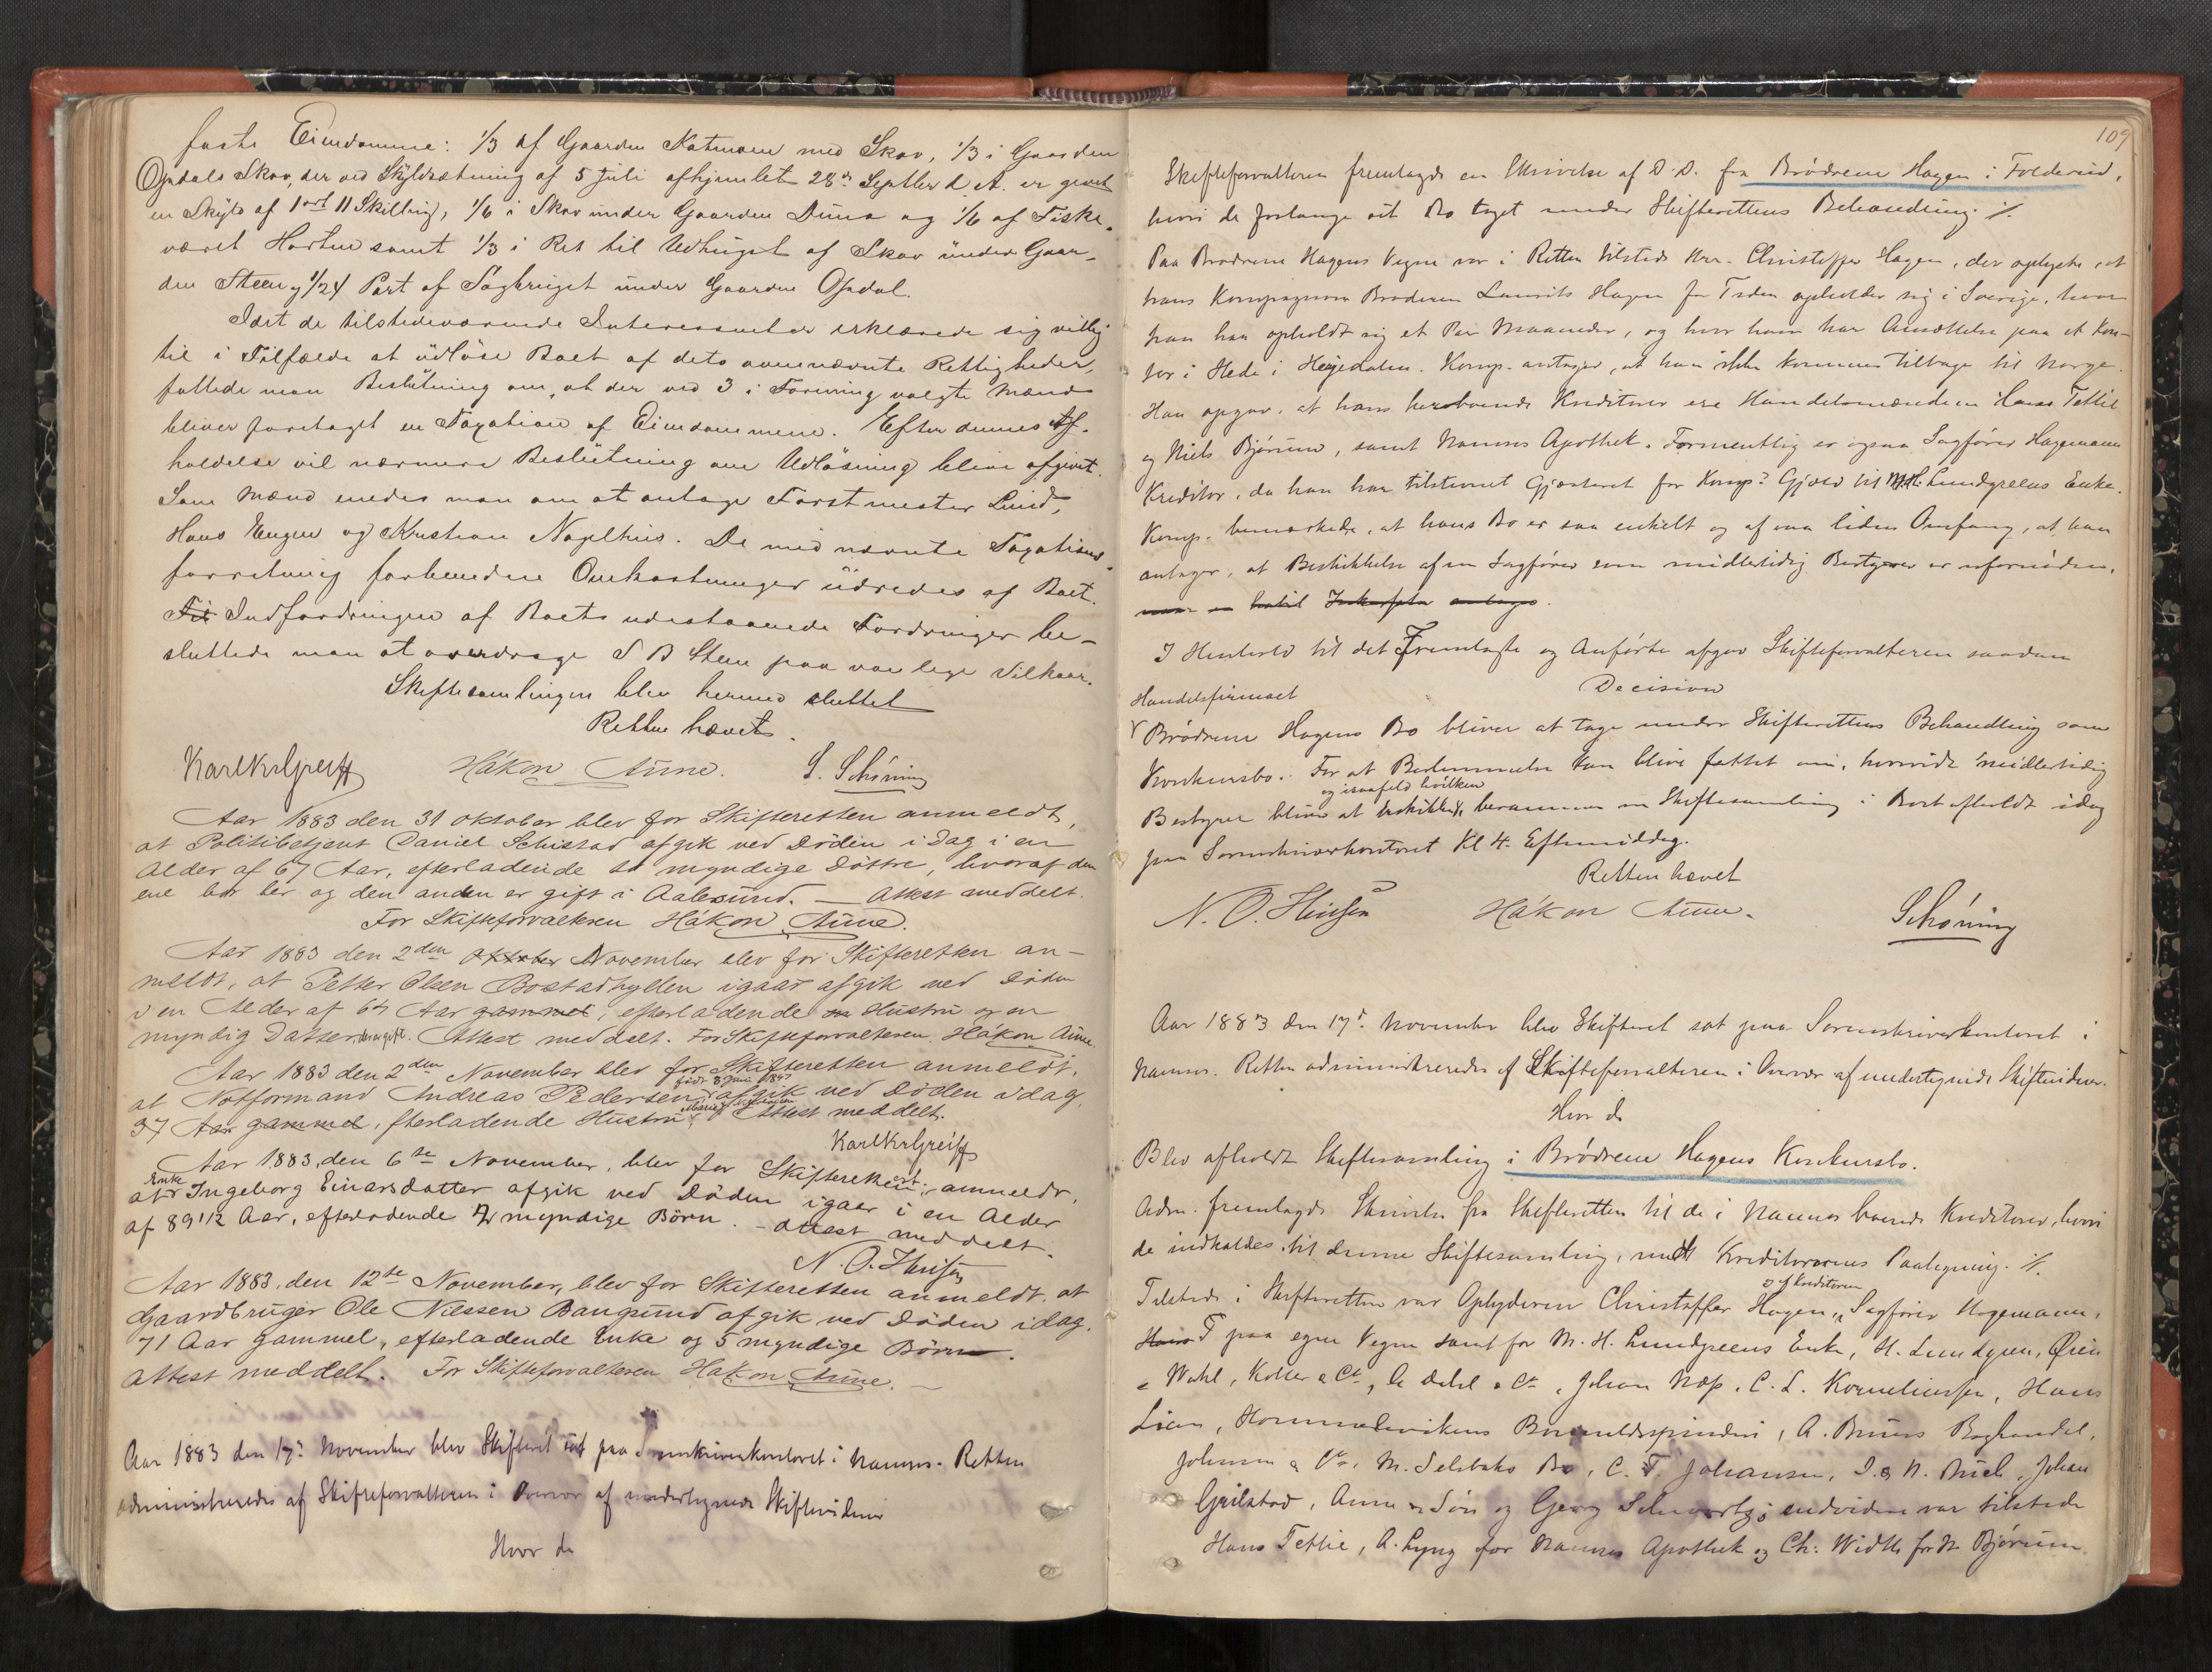 faste Eiendomme: 1/3 af Gaarden Katmoen med Skov, 1/3 i Gaarden
Opdals Skov, der ved Skyldsætning af 5 Juli afhjemlet 28de Septbr d. A. er givet
en Skyld af 1 ort 11 Skilling, 1/6 i Skov under Gaarden Duna og 1/6 af Fiske-
været Horten samt 1/3 i Ret til Udhugst af Skov under Gaar-
den Steen og 1/24 Part af Sagbruget under Gaarden Opdal.
Idet de tilstedeværende Interessenter erklærede sig villig
til i Tilfælde at udløse Boet af dets ovennævnte Rettigheder,
fattede man Beslutning om, at der ved 3 i Forening valgte Mænd
bliver foretaget en Taxation af Eiendommene. Efter dennes Af-
holdelse vil nærmere Beslutning om Udløsning blive afgivet.
Som Mænd enedes man om at antage Forstmester Lund,
Hans Engen og Kristian Naglhus. De med nævnte Taxations-
forretning forbundne Omkostninger udredes af Boet.
Til Indfordringen af Boets udestaaende Fordringer be-
sluttede man at overdrage S B Steen paa vanlige Vilkaar.
Skiftesamlingen blev hermed sluttet
Retten hævet.
Karl Kr Greiff Håkon Aune. S. Schöning
Aar 1883 den 31 oktober blev for Skifteretten anmeldt,
at Politibetjent Daniel Schistad afgik ved Döden i Dag i en
Alder af 67 Aar, efterladende to myndige Döttre, hvoraf den
ene bor her og den anden er gift i Aalesund. — Attest meddelt.
For Skifteforvalteren Håkon Aune.
Aar 1883 den 2den Oktober November blev for Skifteretten an-
meldt, at Petter Olsen Bostadhyllen igaar afgik ved Döden
i en Alder af 64 Aar gammel, efterladende en Hustru og en
myndig Datter, som er gift. Attest meddelt. For Skifteforvalteren. Håkon Aune.
Aar 1883 den 2den November blev for Skifteretten anmeldt,
at Notformand Andreas Pedersen, født 8 Juni 1847 afgik ved Döden idag,
37 Aar gammel, fterladende Hustru, Attest meddelt.
Karl Kr Greiff
Aar 1883, den 6te November, blev for Skifteretten anmeldt,
at Enke Ingeborg Einarsdatter afgik ved Döden igaar i en Alder
af 89 1/2 Aar, efterladende 4 myndige Börn. - Attest meddelt.
N. O. Hansen
Aar 1883, den 12te November, blev for Skifteretten anmeldt, at
Gaardbruger Ole Nilssen Bangsund afgik ved Döden idag,
71 Aar gammel, efterladende Enke og 5 myndige Börn.
Attest meddelt. For Skifteforvalteren Håkon Aune.
Aar 1883 den 17de November blev Skifteret sat paa Sorenskriverkontoret i Namsos. Retten
administreredes af Skifteforvalteren i Overvær af undertegnede Skiftevidner
Hvor da
109
Skifteforvalteren fremlagde en Skrivelse af D. D. fra Brødrene Hagen i Foldereid,
hvori de forlange sit Bo taget under Skifterettens Behandling ./.
Paa Brødrene Hagens Vegne var i Retten tilstede Hr. Christoffer Hagen, der oplyste, at
hans Kompagnon Broderen Laurits Hagen for Tiden opholder sig i Sverige, hvor
han har opholdt sig et Par Maaneder, og hvor han har Ansættelse paa et Kon-
tor i Hede i Herjedalen. Komp. antager, at han ikke kommer tilbage til Norge.
Han opgav, at hans herboende Kreditorer ere Handelsmændene Hans Tettlie
og Niels Bjørum, samt Namsos Apothek. Formentlig er ogsaa Sagfører Hagemann
Kreditor, da han har tilstevnet Gjæsteret for Komp. Gjæld til M. H. Lundgreens Enke.
Komp. bemærkede, at hans Bo er saa enkelt og af saa liden Omfang, at han
antager, at Beskikkelse af en Sagfører som midlertidig Bestyrer er ufornøden.
I Henhold til det Fremlagte og Anførte afgav Skifteforvalteren saadan
Decision
Handelsfirmaet
Brødrene Hagens Bo bliver at tage under Skifterettens Behandling som
Konkursbo. For at Bestemmelse kan blive fattet om, hvorvidt midlertidig
og isaafald hvilken
Bestyrer bliver at beskikke, berammes en Skiftesamling i Boet afholdt idag
paa Sorenskriverkontoret Kl 4. Eftermiddag.
Retten hævet
N. O. Hansen Håkon Aune. Schöning
Aar 1883 den 17de November blev Skifteret sat paa Sorenskriverkontoret i
Namsos. Retten administreredes af Skifteforvalteren i Overvær af undertegnede Skiftevidner.
Hvor da
Blev afholdt Skiftesamling i Brødrene Hagens Konkursbo.
Adm. fremlagde Skrivelse fra Skifteretten til de i Namsos boende Kreditorer, hvori
de indkaldes til denne Skiftesamling, med Kreditorernes Paategning ./.
Tilstede i Skifteretten var Opbyderen Christoffer Hagen, og af Kreditorer Sagfører Hagemann,
paa egne Vegne samt for M. H. Lundgreens Enke, H. Lundgren, Øien
& Wahl, Koller & Co, Dahl & Co, Johan Næss, C. L. Korneliussen, Hans
Lian, Hommelvikens Bomuldsspinderi, A. Bruns Boghandel,
Johnsen & Co, M. Selsbaks Bo, C. F. Johansen, I. & N. Buch, Johan
Grilstad, Aune & Søn og Georg Schwartz; endvidere var tilstede
Hans Tettlie, A. Lyng for Namsos Apothek og Ch. Width for N Bjørum.